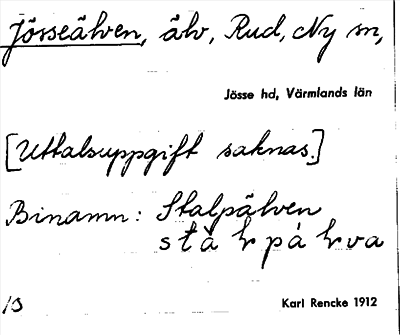 Jösseälven, älv, Rud, Ny sn,
Jösse hd, Värmlands län
[Uttalsuppgift saknas.]
Binamn: Stalpälven
Karl Rencke 1912